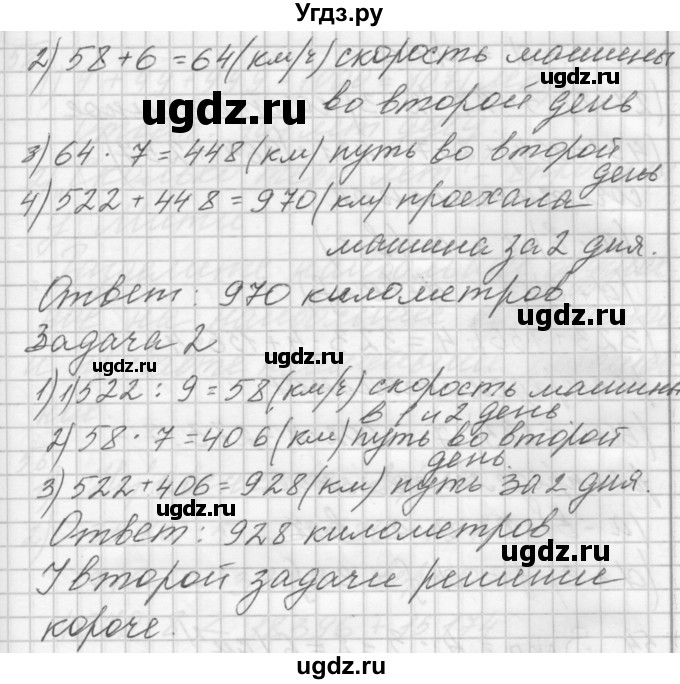 Угдз.ру
2) 58 + 6 = 64 (км/ч) скорость машины
во второй день
3) 64 · 7 = 448 (км) путь во второй
день
4) 522 + 448 = 970 (км) проехала
машина за 2 дня.
Ответ: 970 километров
Задача 2
1) 1) 522 : 9 = 58 (км/ч) скорость машины
в 1 и 2 день
2) 58 · 7 = 406 (км) путь во второй
день.
3) 522 + 406 = 928 (км) путь за 2 дня.
Ответ: 928 километров
У второй задачи решение
короче.
ugdz.ru
ugdz.ru
ugdz.ru
ugdz.ru
ugdz.ru
ugdz.ru
ugdz.ru
ugdz.ru
ugdz.ru
ugdz.ru